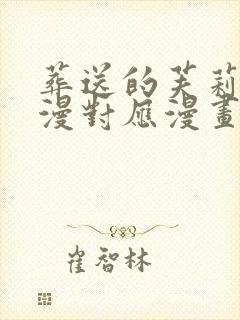 葬送的芙莉
漫對應漫畫
崔智林